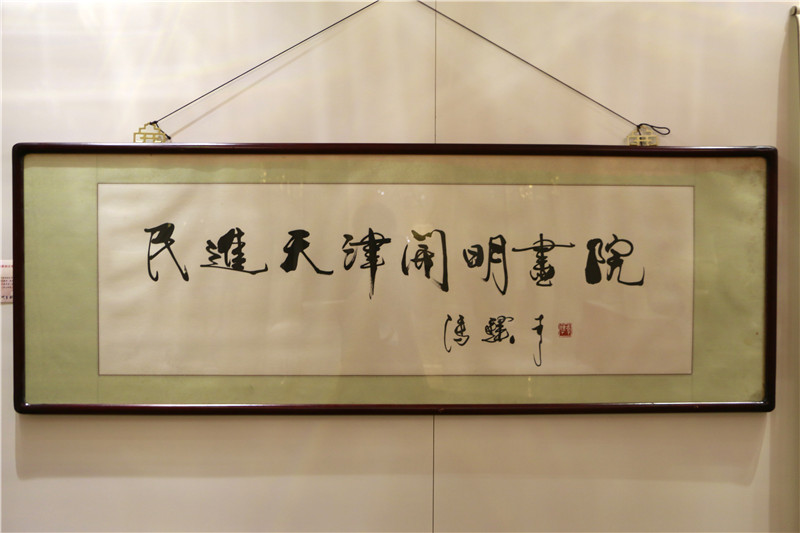 民進天津開明畫院
馮驥才